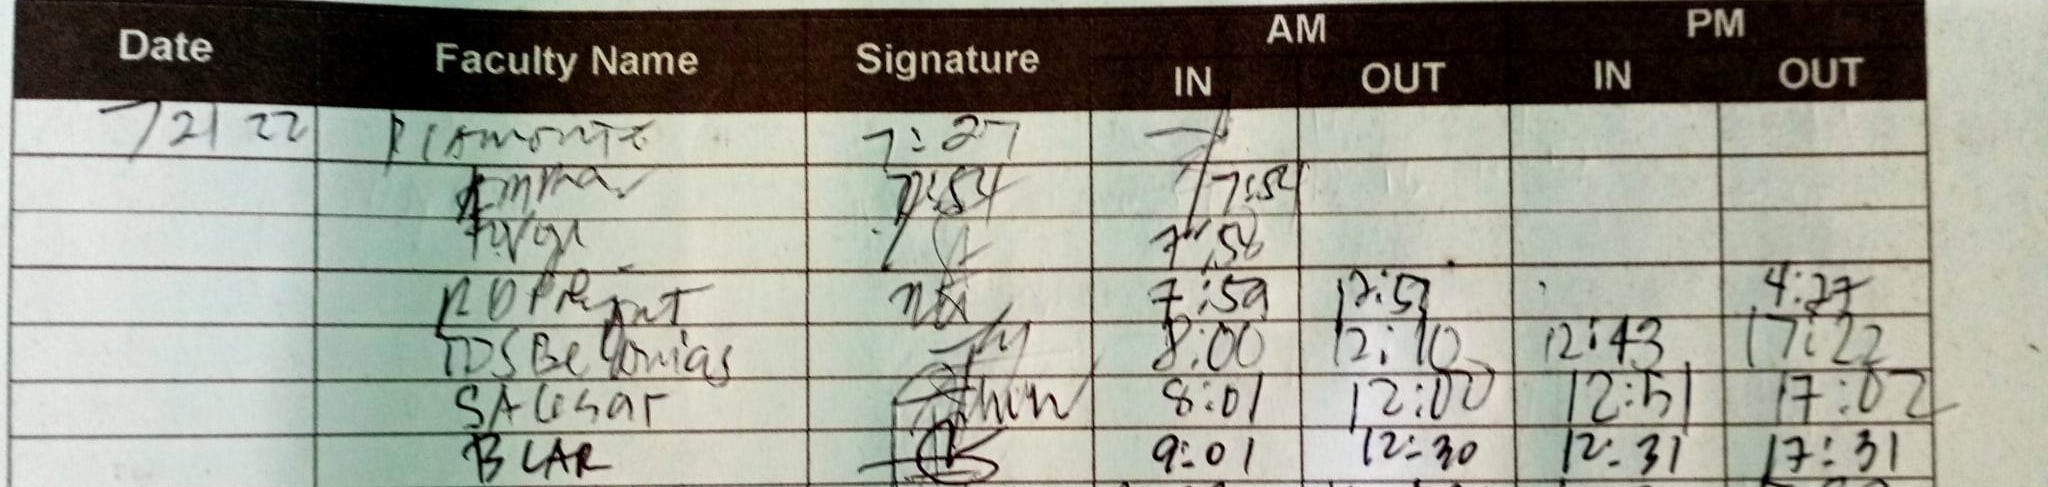 Date Faculty Name Signature AM PM
IN OUT IN OUT
7 21 22 PIAMONTE 7:27
7:54 7:54
7:58
7:59 12:57 4:27
TDS Belonias 8:00 12:10 12:43 17:22
SA Cesar 8:01 12:00 12:51 17:02
B LAR 9:01 12:30 12:31 17:31